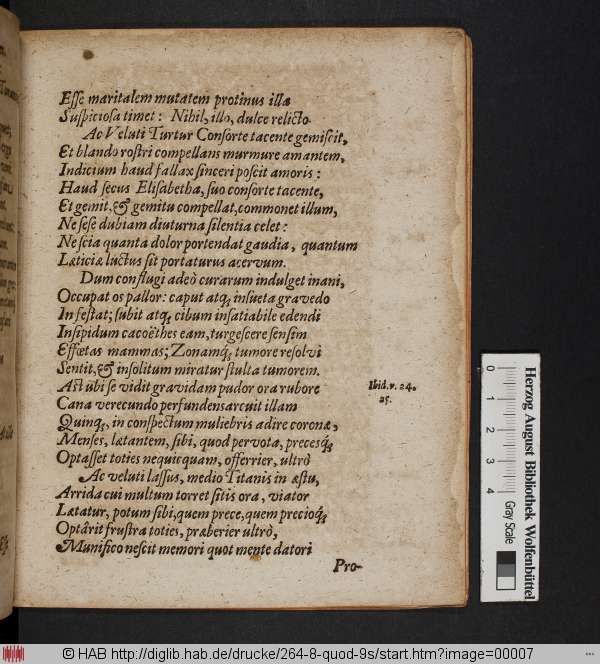 Esse maritalem mutatem protinus illa
Suspiciosa timet: Nihil, illo, dulce relicto.
Ac Veluti Turtur Consorte tacente gemiscit,
Et blando rostri compellans murmure amantem,
Indicium haud fallax sinceri poscit amoris:
Haud secus Elisabetha, suo consorte tacente,
Et gemit, & gemitu compellat, commonet illum,
Ne sese dubiam diuturna silentia celet:
Nescia quanta dolor portendat gaudia, quantum
Læticiæ luctus sit portaturus acervum.
Dum conflugi adeò curarum indulget inani,
Occupat os pallor: caput atq; insueta gravedo
Infestat; subit atq; cibum insatiabile edendi
Insipidum cacoëthes eam, turgescere sensim
Effœtas mammas; Zonamq; tumore resolvi
Sentit, & insolitum miratur stulta tumorem.
Ast ubi se vidit gravidam pudor ora rubore
Cana verecundo perfundens arcuit illam
Quinq;, in conspectum muliebris adire coronæ,
Menses, lætantem, sibi, quod per vota, precesq;
Optasset toties nequicquam, offerrier, ultrò
Ac veluti lassus, medio Titanis in æstu,
Arrida cui multum torret sitis ora, viator
Lætatur, potum sibi, quem prece, quem precioq;
Optârit frustra toties, præberier ultrò,
Munifico nescit memori quot mente datori
Pro-
Ibid. v. 24.
25.
0
1
2
3
4
Herzog August Bibliothek Wolfenbüttel
Gray Scale
© HAB http://diglib.hab.de/drucke/264-8-quod-9s/start.htm?image=00007